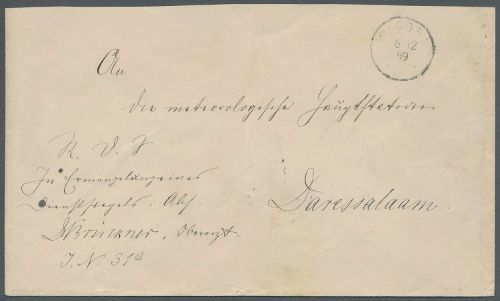 6 12
99
An
die meteorologische Hauptstation
R. D. S
In Ermangelung eines
Dienstsiegels. Abs.
Daressalaam.
Brückner, Oberarzt.
J. N. 319